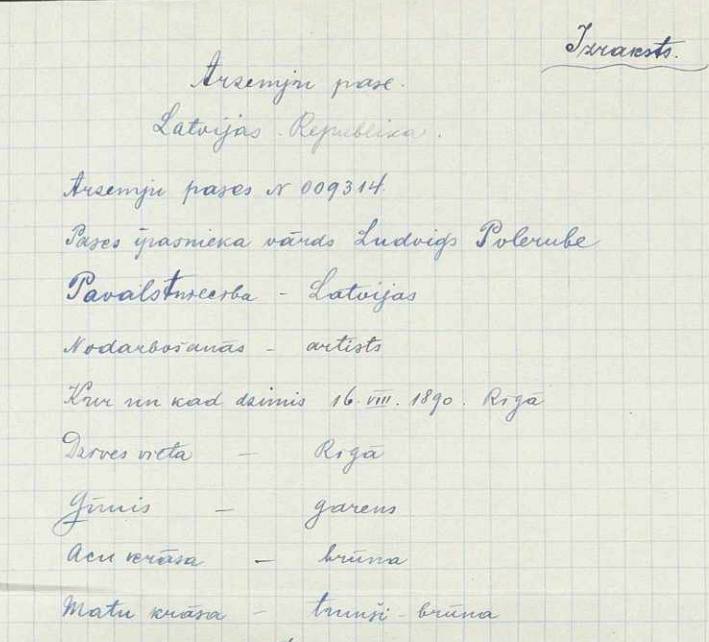 Izraksts.
Arzemju pase.
Latvijas Republika.
Arzemju pases N 009314.
Pases īpasnieka vārds Ludvigs Polerube
Pavalstneecība – Latvijas
Nodarbošanās – artists
Kur un kad dzimis 16. VIII. 1890. Rīgā
Dzīves vieta – Rīgā
Ģīmis – garens
Acu krāsa – brūna
Matu krāsa – tumši-brūna